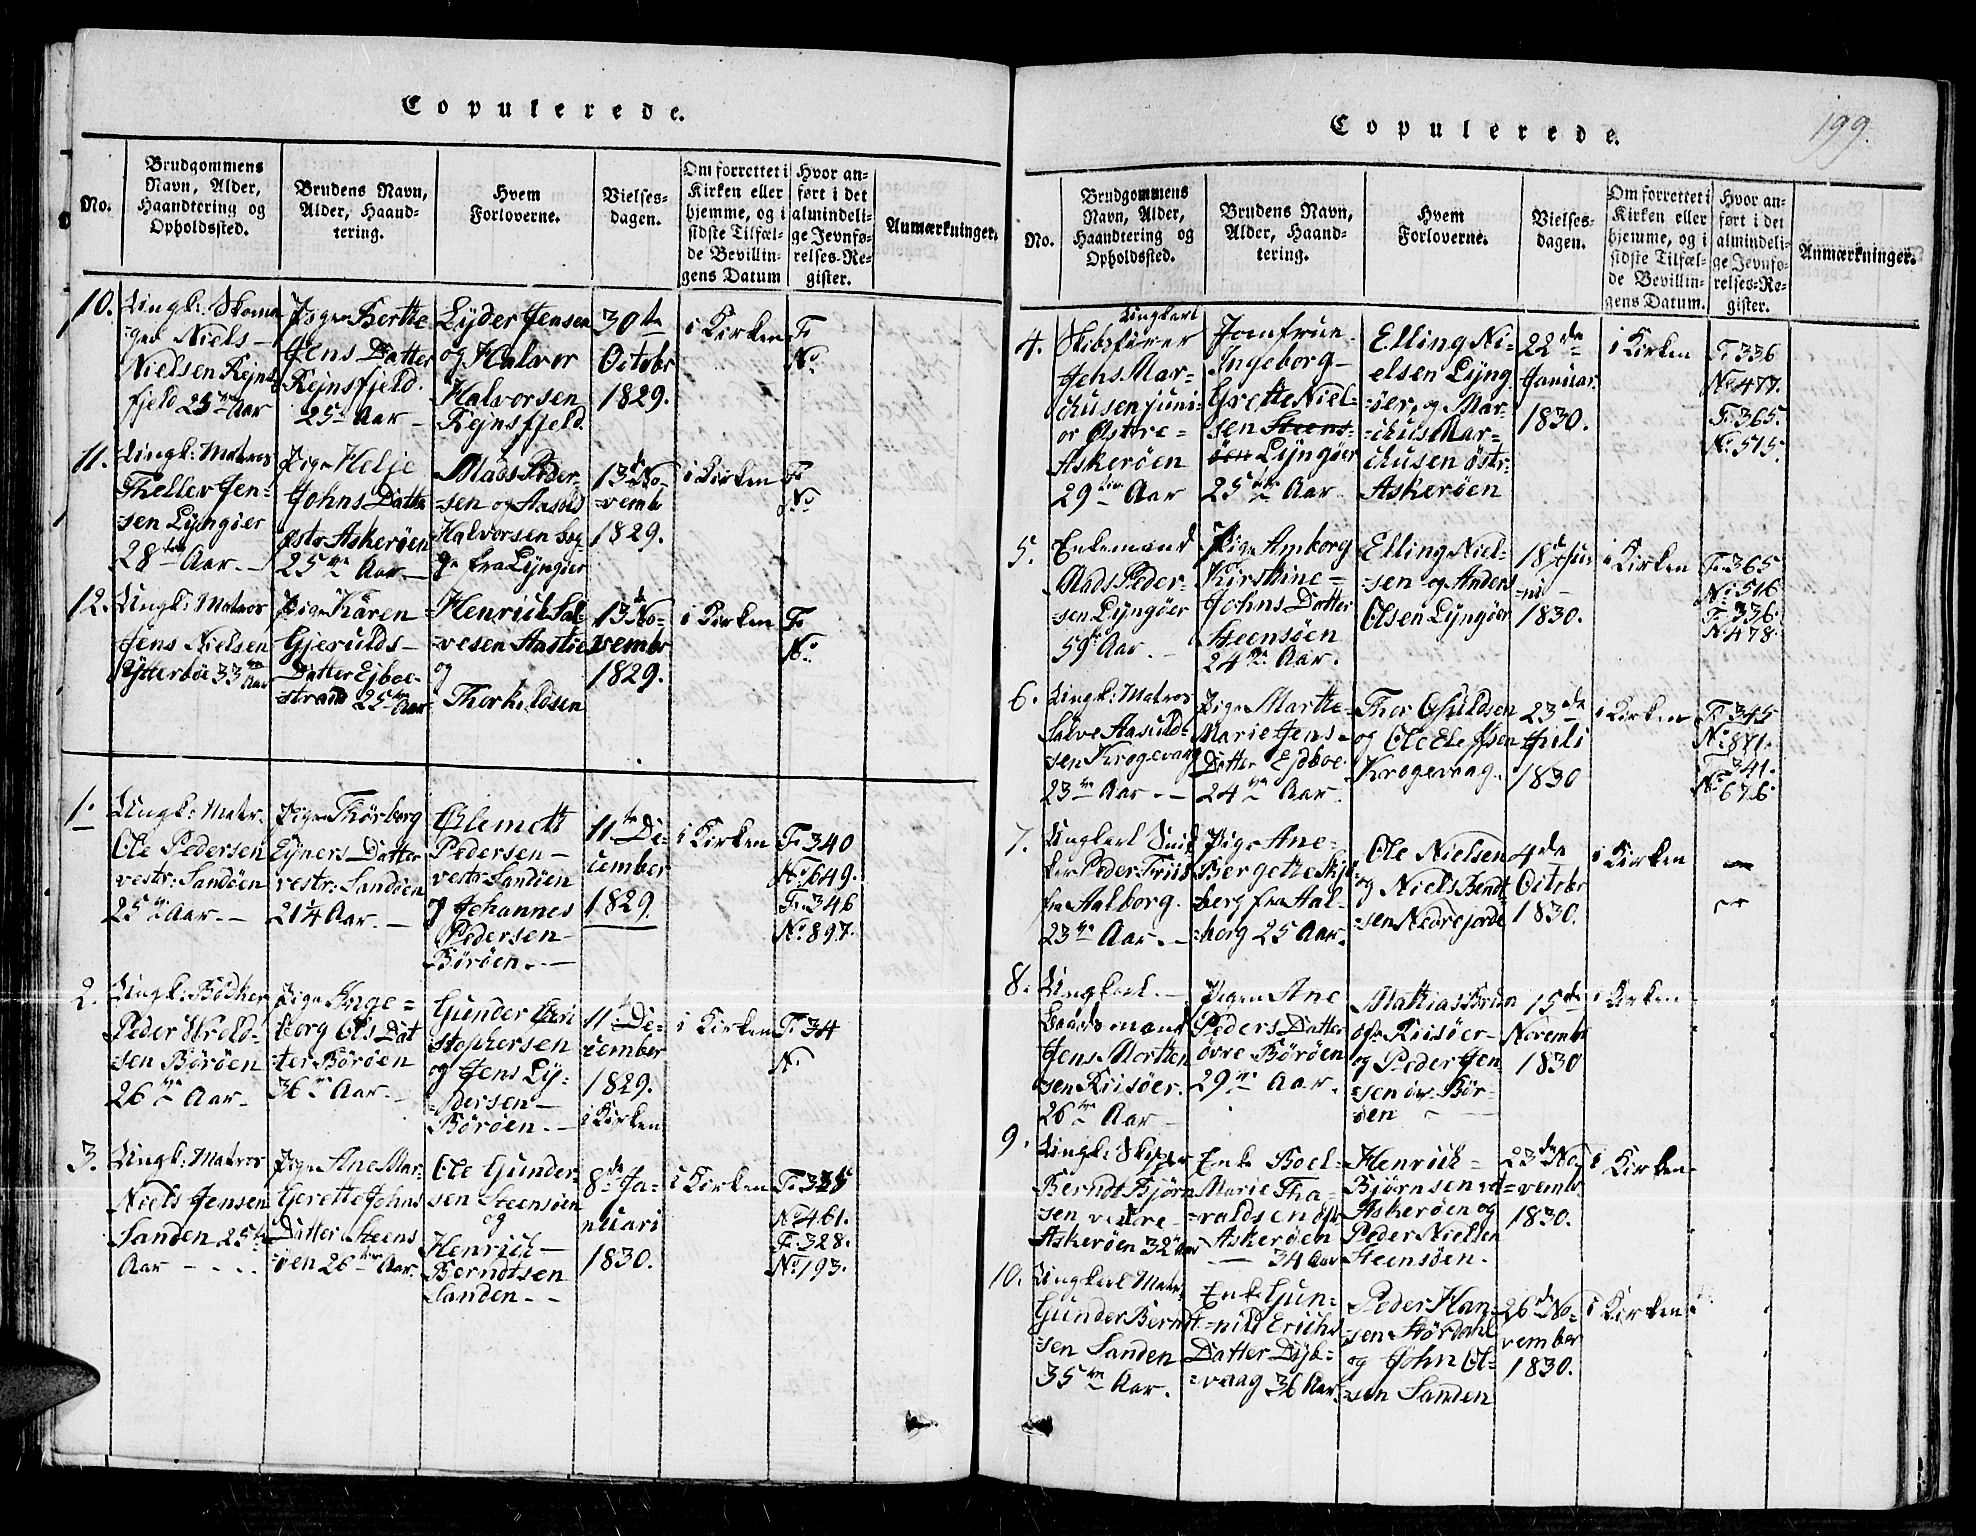 Copulerede.
No.
Brudgommens Navn, Alder, Haandtering og Opholdssted.
Brudens Navn, Alder, Haandtering.
Hvem Forloverne.
Vielsesdagen.
Om forrettet i Kirken eller hjemme, og i sidste Tilfælde Bevillingens Datum
Hvor anført i det almindelige Jevnførelses-Register.
Anmærkninger.
10.
Ungk: Skoma
Niels
Nielsen Rejns
fjeld 25 Aar
Pigen Berthe
Jens Datter
Rejnsfjeld.
25 Aar
Lyder Jensen
og Halvor
Halvorsen
Rejnsfjeld.
30te
Octobr
1829.
i Kirken
F:
No:
11.
Ungk: Matros
Thellev Jen-
sen Lyngöer
28 Aar.
Pigen Helje
Johns Datter
östr Askeröen
25 Aar
Mads Peder-
sen og Aasold
Halvorsen
fra Lyngöer
13 No-
vembr
1829.
i Kirken
F:
No:
12.
Ungk: Matros
Jens Nielsen
Ytterböe 33 Aar
Pige Karen
Gjerulds-
Datter Ejboe-
strand 25 Aar
Henrich Sal-
vesen
og
Thorkildsen
13 No-
vembr
1829.
i Kirken
F:
No:
1.
Ungk: Matr.
Ole Pedersen
vestr: Sandöen
25 Aar.
Pigen Thörborg
Eyners Datter
vestr: Sandöen
21 1/4 Aar.
Clemett
Pedersen
vestr Sandöen
og Johannes
Pedersen
Böröen.
11te De-
cember
1829.
i Kirken
F: 340
No: 649.
F: 346
No: 897.
2.
Ungk: Bödker
Peder
sen Böröen
26 Aar.
Pige Inge-
borg Ols Dat
ter Böröen
36 Aar.
Gunder Cri
stophersen
og Jens Ly-
dersen
Böröen.
11 De-
cember
1829.
i Kirken
i Kirken
F: 34
No
3.
Ungk: Matros
Niels Jensen
Sanden 25
Aar
Pige Ane Mar-
Grette Johns
Datter Steens
öen 26 Aar.
Ole Gunder-
sen Steensöen
og
Henrich
Berndtsen
Sanden.
8de Ja-
nuari
1830.
i Kirken
F: 325
No: 461.
F: 328.
No: 193.
Copulerede.
199.
No.
Brudgommens Navn, Alder, Haandtering og Opholdssted.
Brudens Navn, Alder, Haandtering.
Hvem Forloverne.
Vielsesdagen.
Om forrettet i Kirken eller hjemme, og i sidste Tilfælde Bevillingens Datum.
Hvor anført i det almindelige Jevnførelses-Register.
Anmærkninger.
4.
Ungkarl
Skibsförer
Jens Mar-
cusen juni-
or Östre
Askeröen
29 Aar
Jomfrue
Ingeborg
Grette Niel-
sen Steens-
öen Lyngöer
25 Aar.
Elling Ni-
elsen Lyng
öer, og Mar-
cus Mar-
cusen östr-
Askeröen
22de
Januar.
1830.
i Kirken
F: 336
No 477.
F: 365.
No: 515.
5.
Enkemand
Mads Peder-
sen Lyngöer
59 Aar.
Pige Amborg
Kirstine
Johns Datter
Steensöen
24 Aar.
Elling Niel-
sen og Anders
Olsen Lyngöer
18de Ju-
ni
1830.
i Kirken
F: 365
No: 516
F: 336.
No: 478.
6.
Ungk: Matros
Salve Aasuld-
sen Krogevaag
23 Aar.
Pige Marthe
Marie Jens-
Datter Ejdboe
24 Aar.
Thor
og Ole
Krogevaag.
23de
Juli
1830
i Kirken
F: 345
No: 871.
F: 341.
No: 676.
7.
Ungkarl Snid
ker Peder Friis
fra Aalborg.
23 Aar.
Pige Ane
Bergette
berg fra Aal-
borg 25 Aar.
Ole Nielsen
og Niels Bendt
sen Nedrejorde
4de
Octobr
1830.
i Kirken
8.
Ungkarl
Baadsmand
Jens Morten
sen Riisöer.
26 Aar
Pigen Ane
Peders Datter
övre Böröen
29 Aar.
Mathias Brun
af Riisöer
og Peder Jen
sen övr. Bör-
öen
15de
Novembr
1830
i Kirken
9.
Ungk: Skipper
Berndt Björn
sen vestre
Askeröen 32 Aar
Enke Boel
Marie Tha-
raldsen öst
Askeröen
34 Aar
Henrich
Björnsen
Askeröen og
Peder Nielsen
Steensöen.
23de No-
vembr
1830.
i Kirken
10.
Ungkarl Matr
Gunder Berndt-
sen Sanden
35 Aar.
Enke Gun-
nild Erichs
Datter Dyb-
vaag 36 Aar.
Peder Han-
sen Stördahl
og John Ol-
sen Sanden
26de No-
vember
1830.
i Kirken